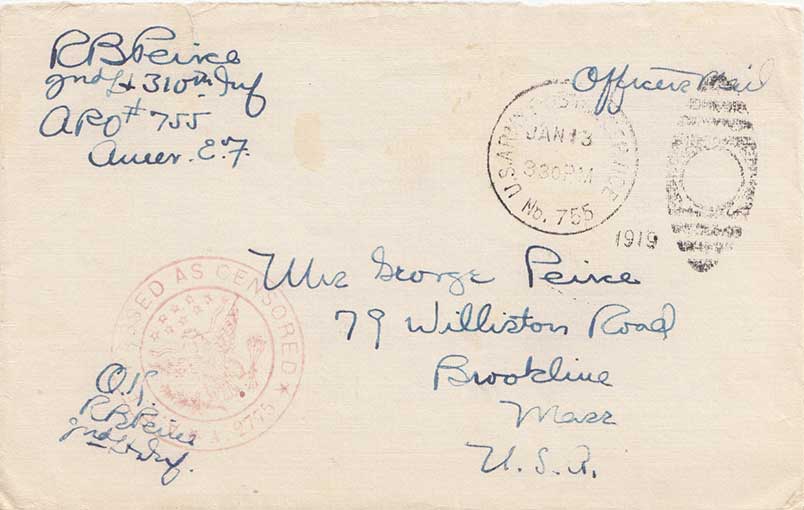 R B Peirce
2nd Lt 310th Inf
APO # 755
Amer. E. F.
Officers Mail
U.S. ARMY POST SERVICE
JAN 13
3 30 PM
No. 755
1919
Mrs George Peirce
79 Williston Road
Brookline
Mass
U. S. A.
PASSED AS CENSORED
A. 2775
O. K.
R B Peirce
2nd Lt Inf.